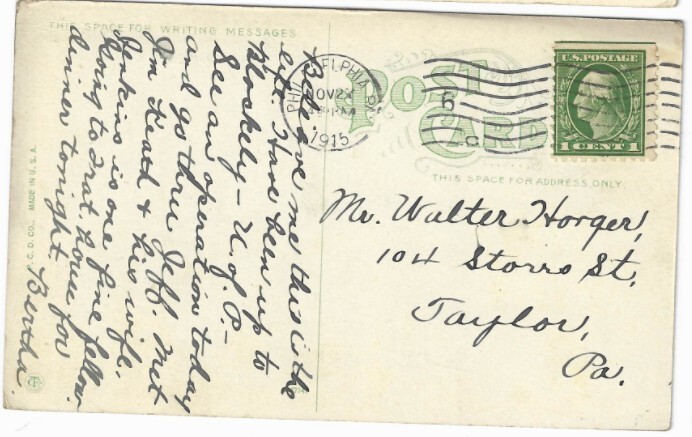 THIS SPACE FOR WRITING MESSAGES
Believe me this is the
life. Have been up to
Blockely - U. of P. -
See an operation today
and go thru Jeff. Met
Jim Heard & his wife.
Jenkins is one fine fellow.
Going to Frat. house for
dinner tonight.
Bertha.
P. C. D. CO. MADE IN U. S. A.
PHILADELPHIA PA
NOV 2
PM
1915
6
C
POST CARD
U.S. POSTAGE
1 CENT 1
THIS SPACE FOR ADDRESS ONLY.
Mr. Walter Horger,
104 Storrs St.
Taylor,
Pa.